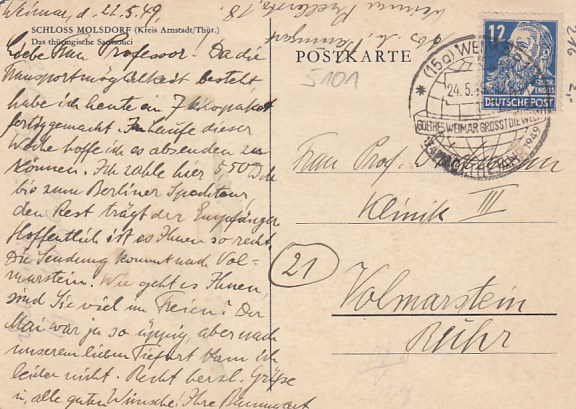 Weimar, d. 22.5.49,
SCHLOSS MOLSDORF (Kreis Arnstadt/Thür.)
Das thüringische Sanssouci
Liebe Frau Professor! Da die
Transportmöglichkeit besteht
habe ich heute ein 7 kilopaket
fertiggemacht. Im Laufe dieser
Woche hoffe ich es absenden zu
können. Ich zahle hier 5,50 
bis zum Berliner Spediteur
den Rest trägt der Empfänger
Hoffentlich ist es Ihnen so recht.
Die Sendung kommt nach Vol-
marstein. Wie geht es Ihnen,
sind Sie viel im Freien? Der
Mai war ja so üppig, aber nach
unserem lieben Tiefurt kam ich
leider nicht. Recht herzl. Grüße
u. alle guten Wünsche! Ihre
POSTKARTE
5101
12
DEUTSCHE POST
(15a) WEIMAR
24.5.49
GOETHES WEIMAR GRÜSST DIE WELT
1949
Frau Prof.
Klinik III
21
Volmarstein
Ruhr